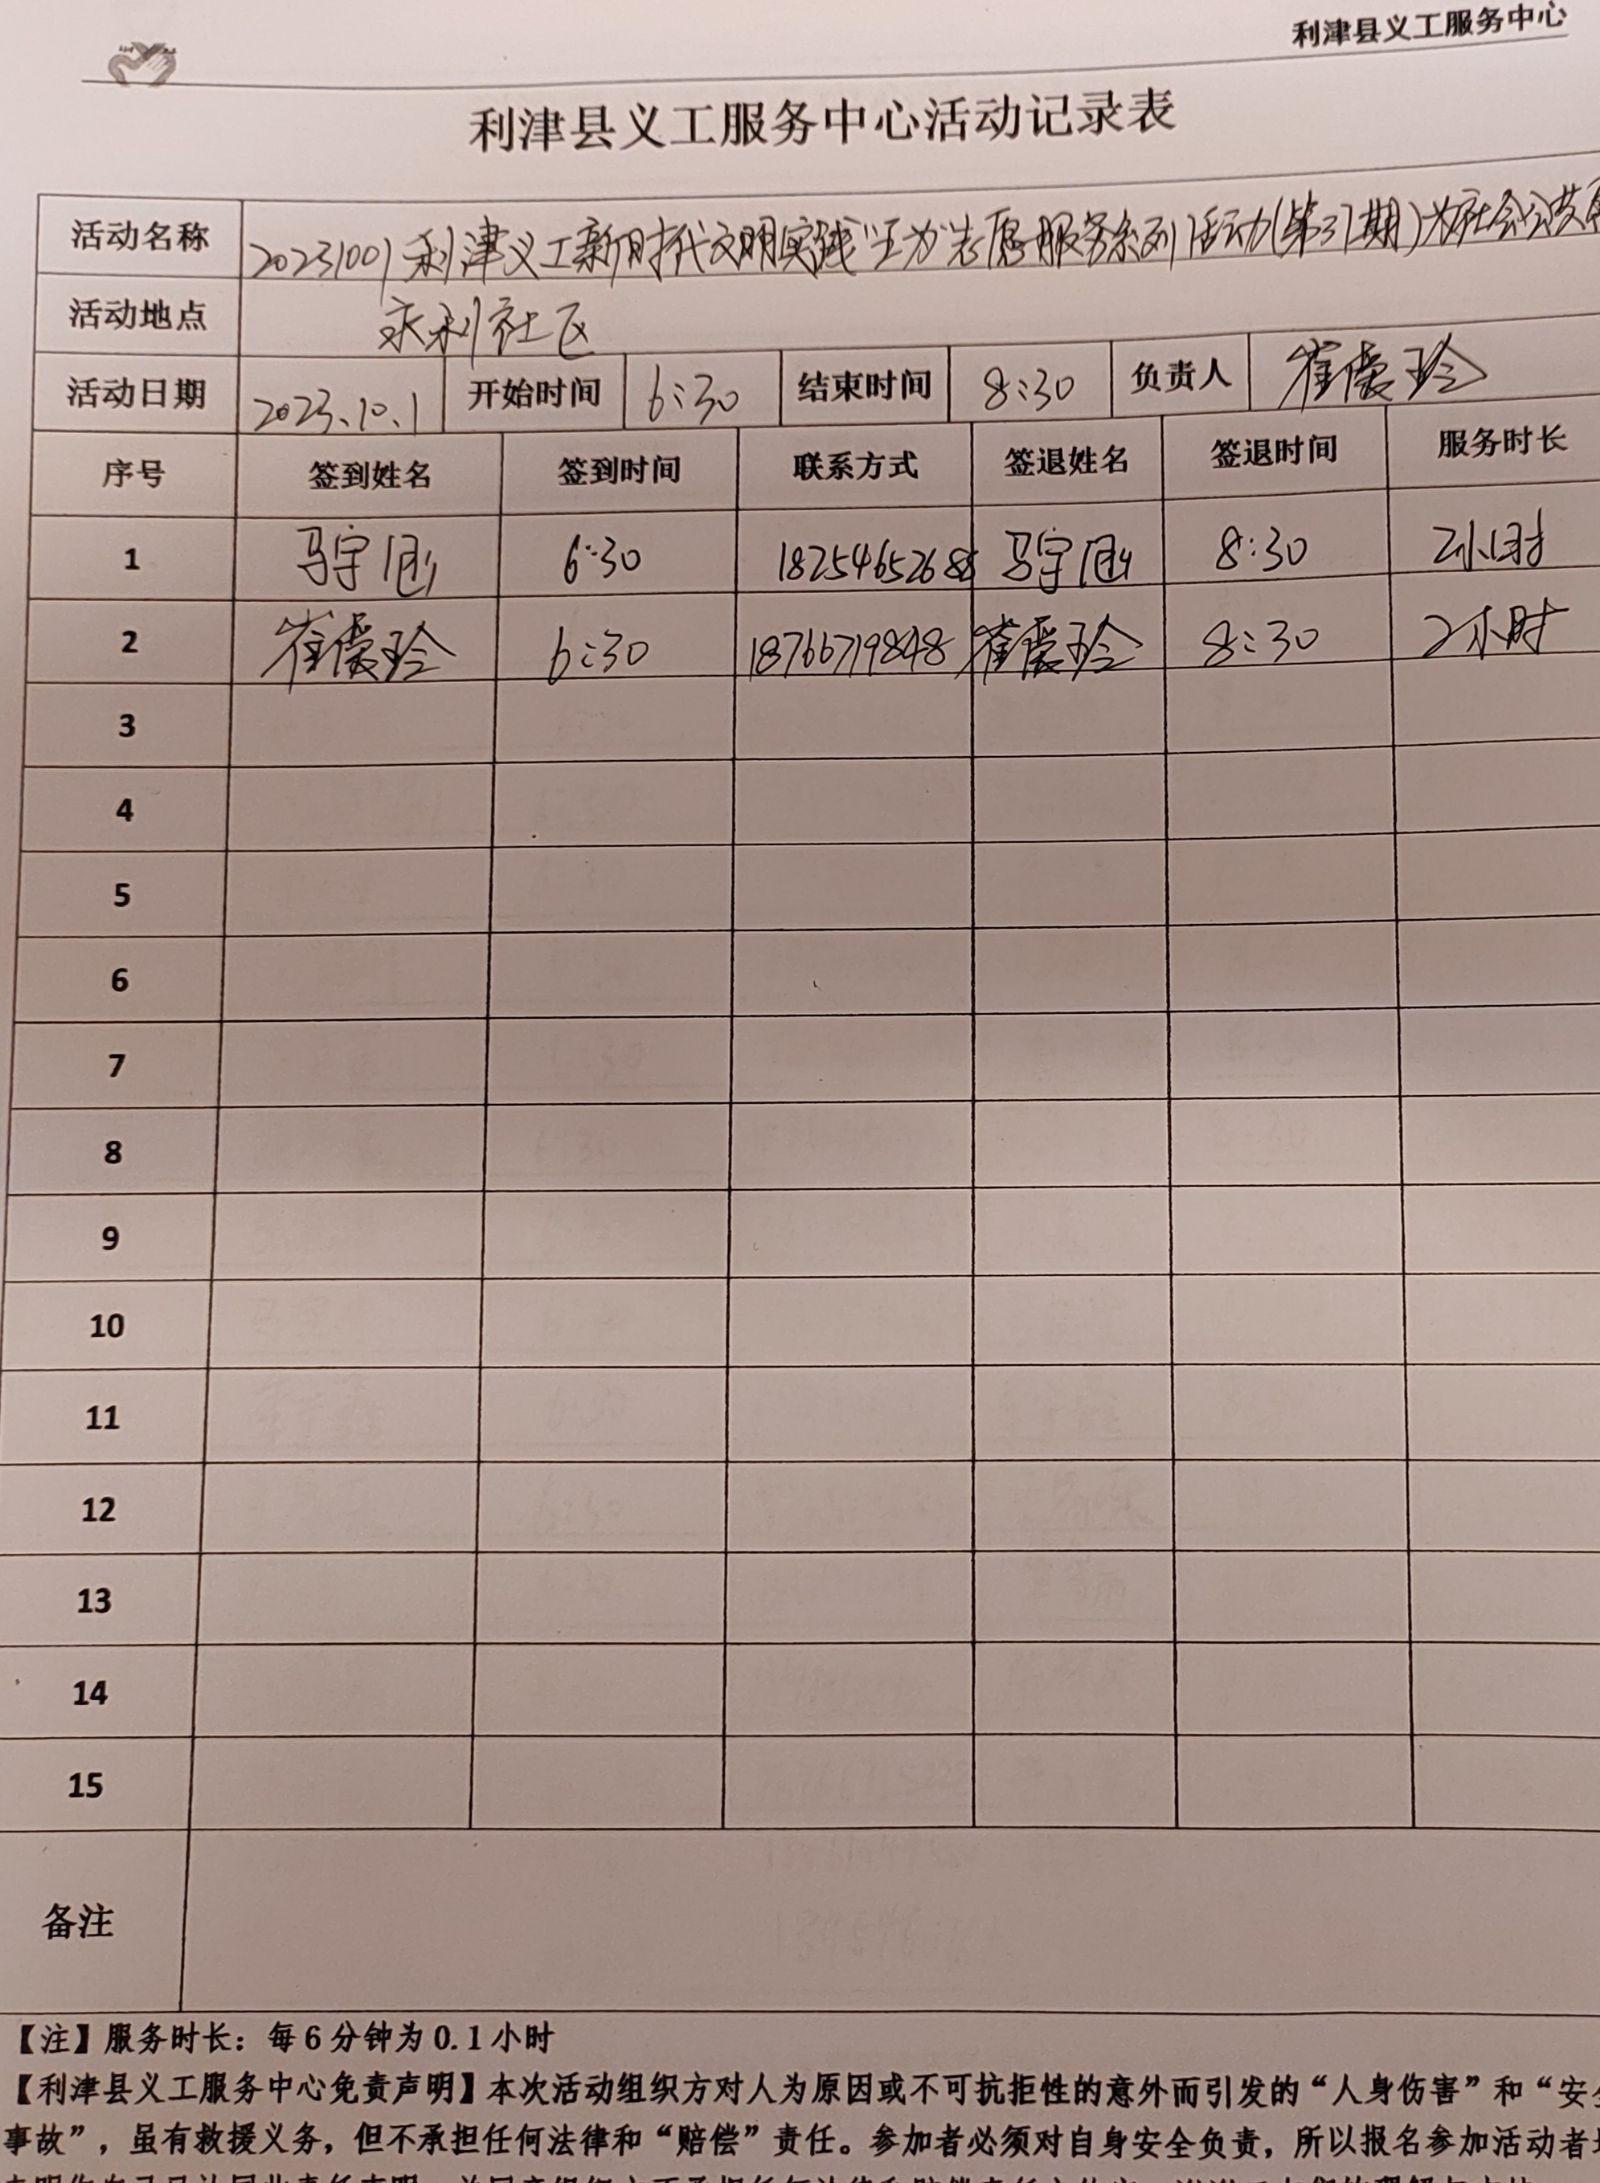 利津县义工服务中心
利津县义工服务中心活动记录表
活动名称 20231001利津义工新时代文明实践"五为"志愿服务系列活动(第37期)为社会公共
活动地点 永利社区
活动日期 2023.10.1 开始时间 6:30 结束时间 8:30 负责人 崔霞玲
序号 签到姓名 签到时间 联系方式 签退姓名 签退时间 服务时长
1 马宇 6:30 182546526 马宇 8:30 2小时
2 崔霞玲 6:30 18766719848 崔霞玲 8:30 2小时
3
4
5
6
7
8
9
10
11
12
13
14
15
备注
【注】服务时长：每6分钟为0.1小时
【利津县义工服务中心免责声明】本次活动组织方对人为原因或不可抗拒性的意外而引发的“人身伤害”和“安全
事故”，虽有救援义务，但不承担任何法律和“赔偿”责任。参加者必须对自身安全负责，所以报名参加活动者